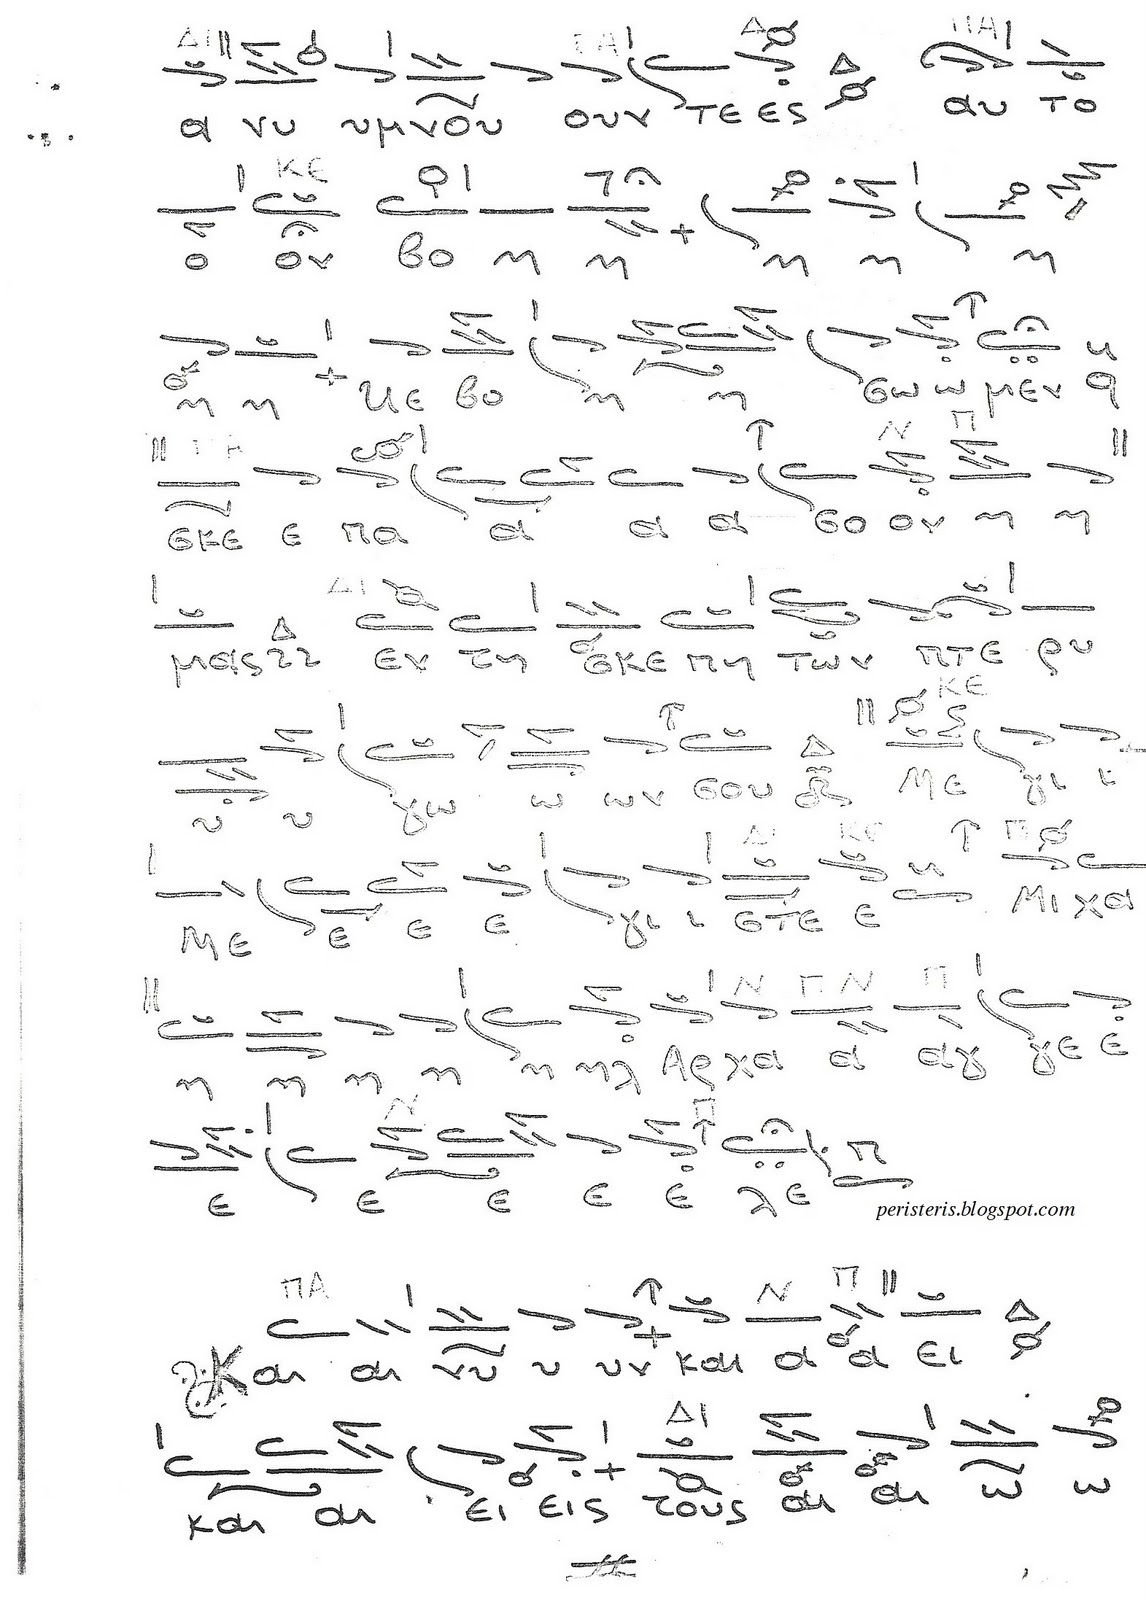 α νυ υμνου ουν τε ες αυ το
ο ον βο η η η η η
η η με βο η η σω ω μεν
σκε ε πα α α α σο ον η η
μας εν τη σκε πη των πτε ρυ
υ υ γω ω ων σου Με γι ι
Με ε ε ε γι ι στε ε Μι χα
η η η η η ηλ Αρ χα α αγ γε ε
ε ε ε ε ε λε
peristeris.blogspot.com
Και αι νυ υ υν και α α ει
και αι ει εις τους αι αι ω ω